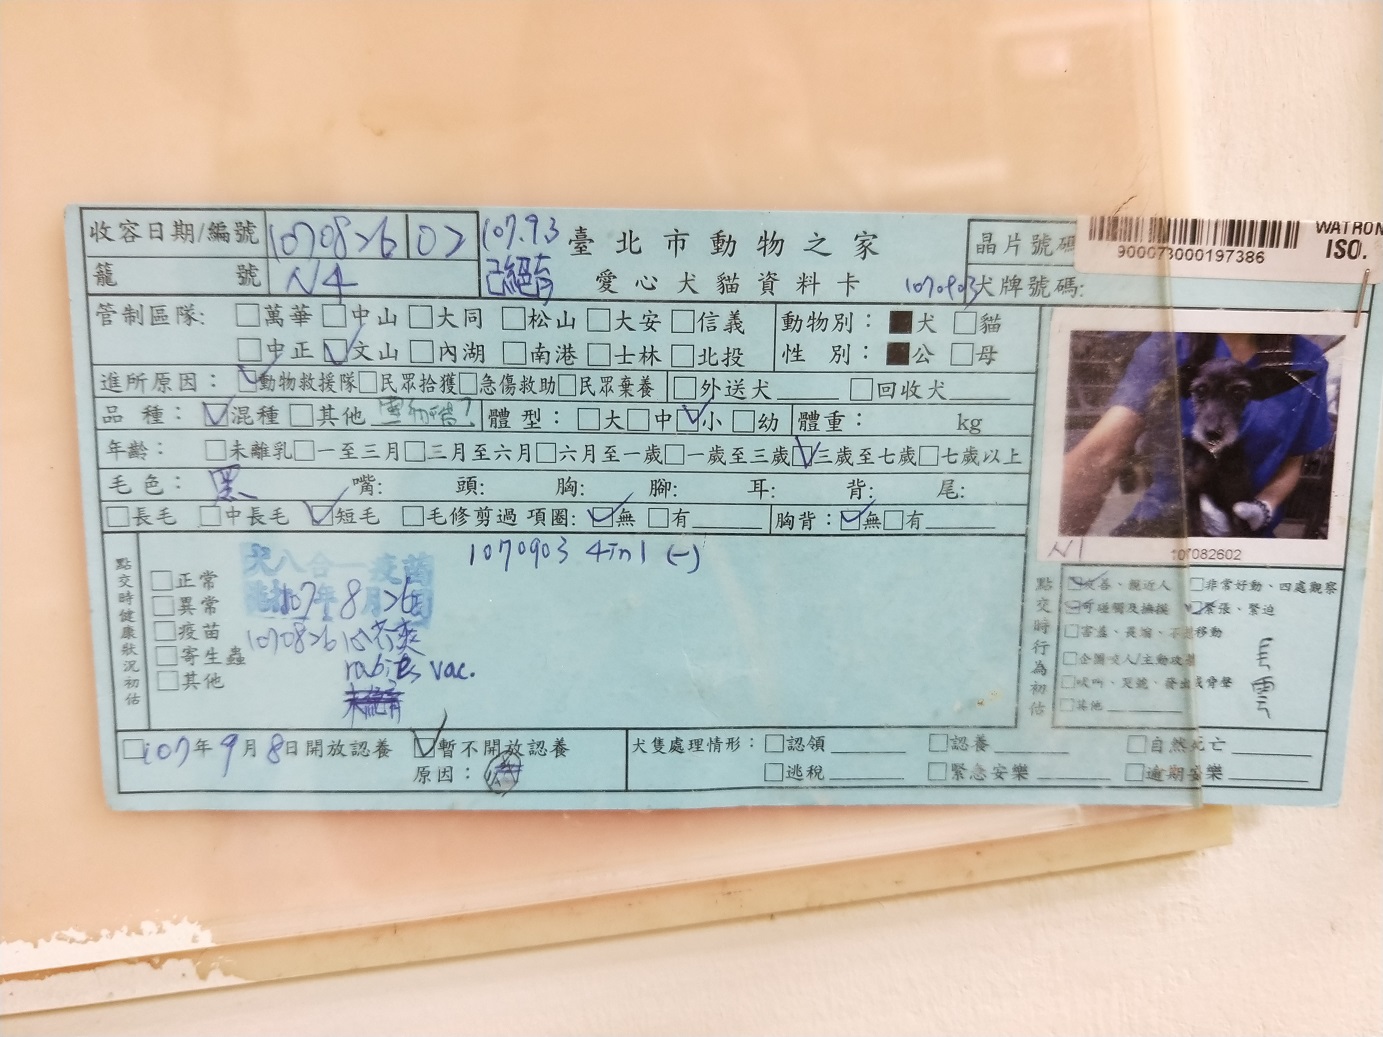 收容日期/編號 1070826 02
107.9.3 臺北市動物之家
晶片號碼
900073000197386
WATRON
ISO.
籠 號 N4
已絕育 愛心犬貓資料卡
1070903 犬牌號碼:
管制區隊: □萬華 □中山 □大同 □松山 □大安 □信義
動物別: ■犬 □貓
□中正 ☑文山 □內湖 □南港 □士林 □北投
性 別: ■公 □母
進所原因: ☑動物救援隊 □民眾拾獲 □急傷救助 □民眾棄養 □外送犬 □回收犬
品 種: ☑混種 □其他
體 型: □大 □中 ☑小 □幼 體重: kg
年齡: □未離乳 □一至三月 □三月至六月 □六月至一歲 □一歲至三歲 ☑三歲至七歲 □七歲以上
毛色: 黑 嘴: 頭: 胸: 腳: 耳: 背: 尾:
□長毛 □中長毛 ☑短毛 □毛修剪過 項圈: ☑無 □有 胸背: ☑無 □有
N1 107082602
點交時健康狀況初估
□正常
□異常
□疫苗
□寄生蟲
□其他
犬八合一疫苗
107年8月26
1070903 4in1 (-)
1070826
rabies vac.
點交時行為初估
☑友善、親近人 □非常好動、四處觀察
☑可碰觸及撫摸 ☑緊張、緊迫
□害羞、畏縮、不想移動
□企圖咬人/主動攻擊
□吠叫、哭號、發出威脅聲
□其他
□107年9月8日開放認養 ☑暫不開放認養
原因:
犬隻處理情形: □認領 □認養 □自然死亡
□逃稅 □緊急安樂 □逾期安樂